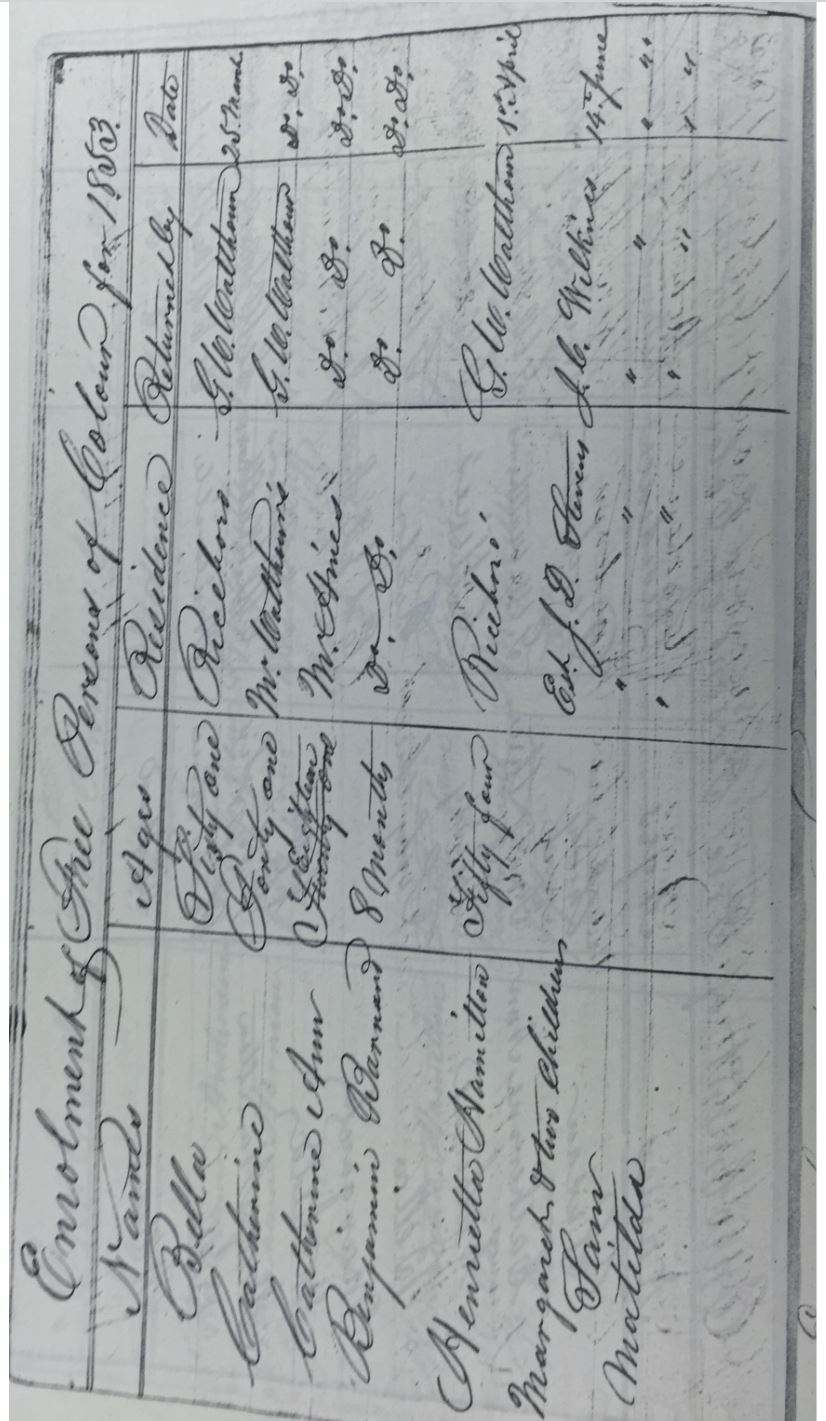 Enrolment of Free Persons of Colour for 1853.
Names Ages Residence Returned by Date
Bella Sixty one Riceboro G. W. Walthour 25 March
Catherine Forty one Mr. Walthour's G. W. Walthour Do. Do.
Catherine Ann Eighteen Twenty one Mr. Do. Do. Do. Do.
Benjamin Barnard 8 Months Do. Do. Do. Do. Do. Do.
Henrietta Hamilton Fifty four Riceboro' G. W. Walthour 1st April
Margaret & two children Est. J. D. Stevens J. C. Wilkins 14th June
Sam " " " " " "
Matilda " " " " " "